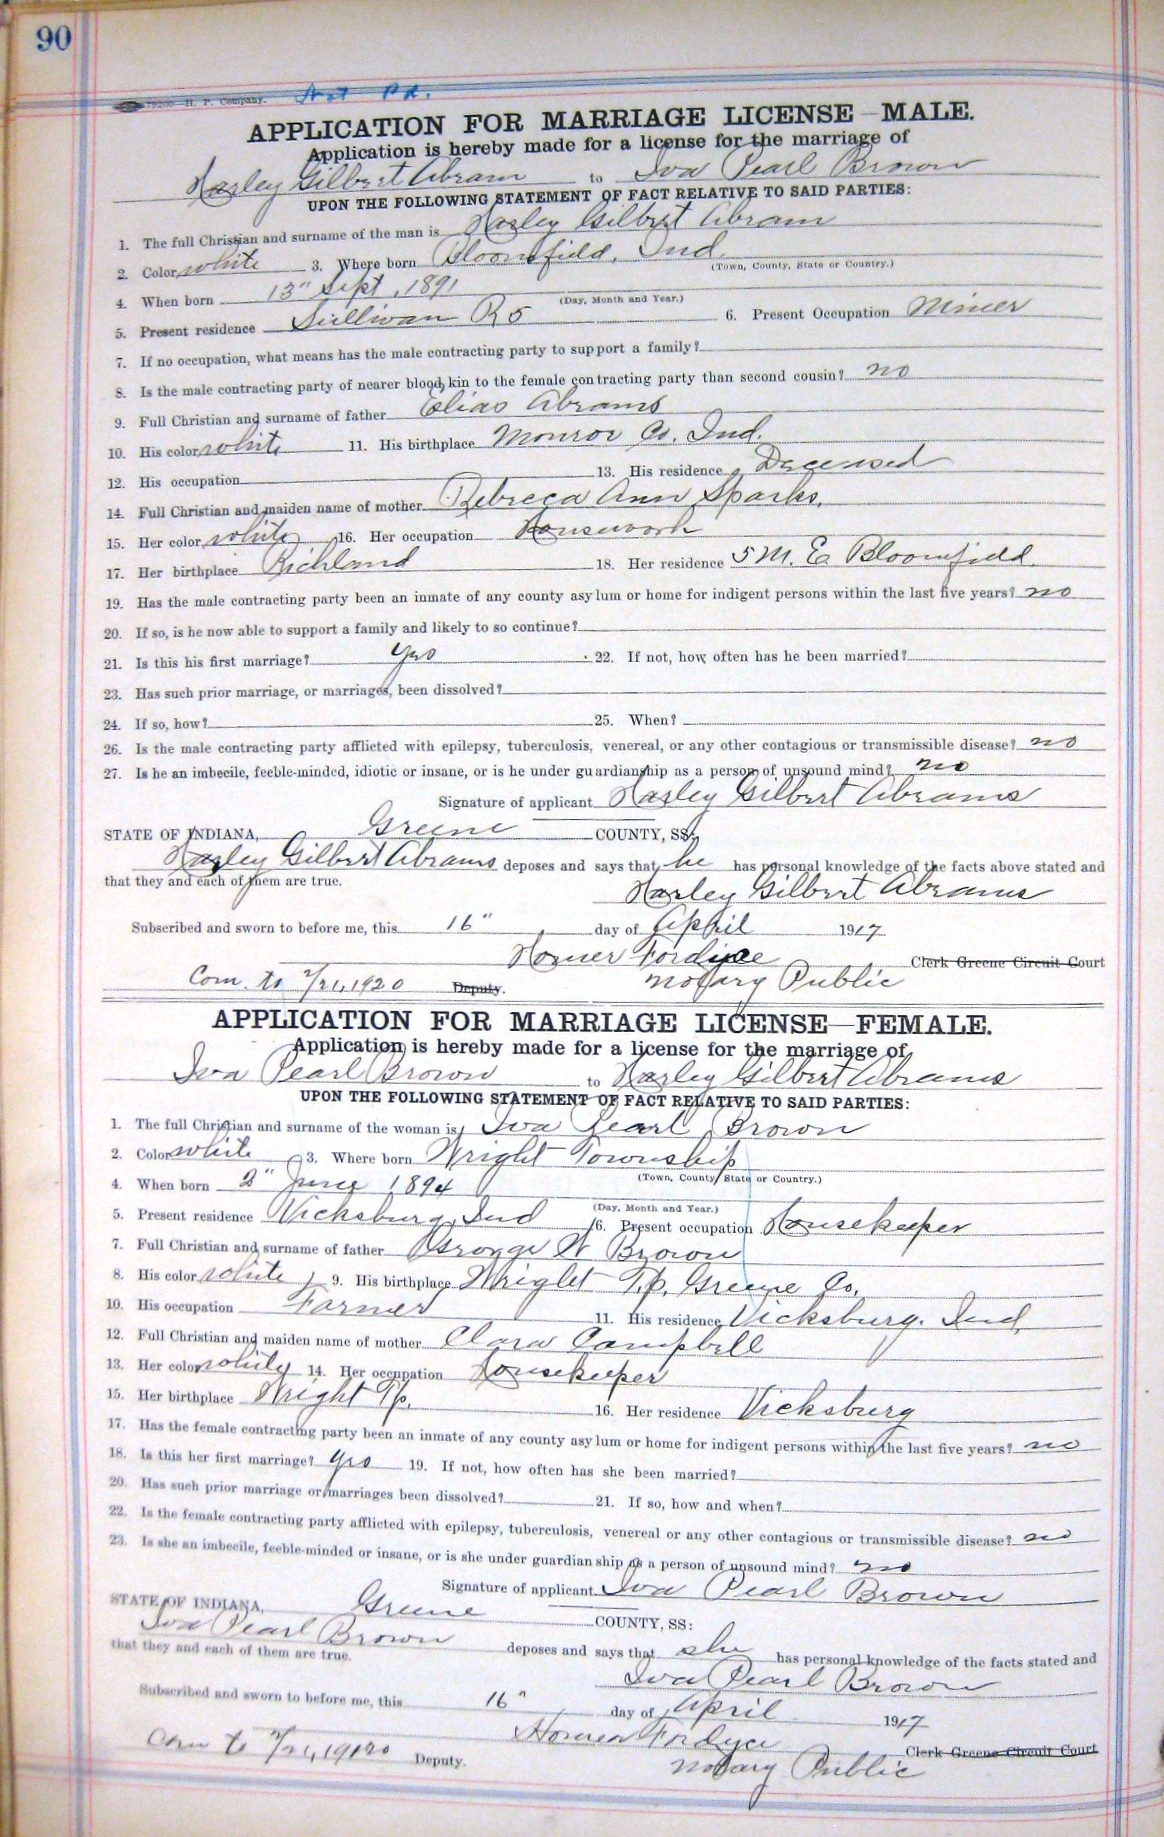 90
H. P. Company. Not Pd.
APPLICATION FOR MARRIAGE LICENSE—MALE.
Application is hereby made for a license for the marriage of
Harley Gilbert Abram to Iva Pearl Brown
UPON THE FOLLOWING STATEMENT OF FACT RELATIVE TO SAID PARTIES:
1. The full Christian and surname of the man is Harley Gilbert Abram
2. Color white 3. Where born Bloomfield, Ind.
(Town, County, State or Country.)
4. When born 13" Sept, 1891
(Day, Month and Year.)
5. Present residence Sullivan R5 6. Present Occupation Miner
7. If no occupation, what means has the male contracting party to support a family?
8. Is the male contracting party of nearer blood kin to the female contracting party than second cousin? no
9. Full Christian and surname of father Elias Abrams
10. His color white 11. His birthplace Monroe Co. Ind.
12. His occupation 13. His residence Deceased
14. Full Christian and maiden name of mother Rebecca Ann Sparks.
15. Her color white 16. Her occupation Housework
17. Her birthplace Richland 18. Her residence 5 M. E Bloomfield.
19. Has the male contracting party been an inmate of any county asylum or home for indigent persons within the last five years? no
20. If so, is he now able to support a family and likely to so continue?
21. Is this his first marriage? yes 22. If not, how often has he been married?
23. Has such prior marriage, or marriages, been dissolved?
24. If so, how? 25. When?
26. Is the male contracting party afflicted with epilepsy, tuberculosis, venereal, or any other contagious or transmissible disease? no
27. Is he an imbecile, feeble-minded, idiotic or insane, or is he under guardianship as a person of unsound mind? no
Signature of applicant Harley Gilbert Abrams
STATE OF INDIANA, Greene COUNTY, SS:
Harley Gilbert Abrams deposes and says that he has personal knowledge of the facts above stated and
that they and each of them are true. Harley Gilbert Abrams
Subscribed and sworn to before me, this 16" day of April 1917
Homer Fordyce Clerk Greene Circuit Court
Com. to 7/21, 1920 Deputy. Notary Public
APPLICATION FOR MARRIAGE LICENSE—FEMALE.
Application is hereby made for a license for the marriage of
Iva Pearl Brown to Harley Gilbert Abrams
UPON THE FOLLOWING STATEMENT OF FACT RELATIVE TO SAID PARTIES:
1. The full Christian and surname of the woman is Iva Pearl Brown
2. Color white 3. Where born Wright Township
(Town, County State or Country.)
4. When born 2" June 1894
(Day, Month and Year.)
5. Present residence Vicksburg, Ind 6. Present occupation Housekeeper
7. Full Christian and surname of father George W Brown
8. His color white 9. His birthplace Wright Tp. Greene Co.
10. His occupation Farmer 11. His residence Vicksburg. Ind.
12. Full Christian and maiden name of mother Clara Campbell
13. Her color white 14. Her occupation Housekeeper
15. Her birthplace Wright Tp. 16. Her residence Vicksburg
17. Has the female contracting party been an inmate of any county asylum or home for indigent persons within the last five years? no
18. Is this her first marriage? yes 19. If not, how often has she been married?
20. Has such prior marriage or marriages been dissolved? 21. If so, how and when?
22. Is the female contracting party afflicted with epilepsy, tuberculosis, venereal or any other contagious or transmissible disease? no
23. Is she an imbecile, feeble-minded or insane, or is she under guardianship as a person of unsound mind? no
Signature of applicant Iva Pearl Brown
STATE OF INDIANA, Greene COUNTY, SS:
Iva Pearl Brown deposes and says that she has personal knowledge of the facts stated and
that they and each of them are true. Iva Pearl Brown
Subscribed and sworn to before me, this 16" day of April 1917
Homer Fordyce Clerk Greene Circuit Court
Com to 7/21, 1920 Deputy. Notary Public